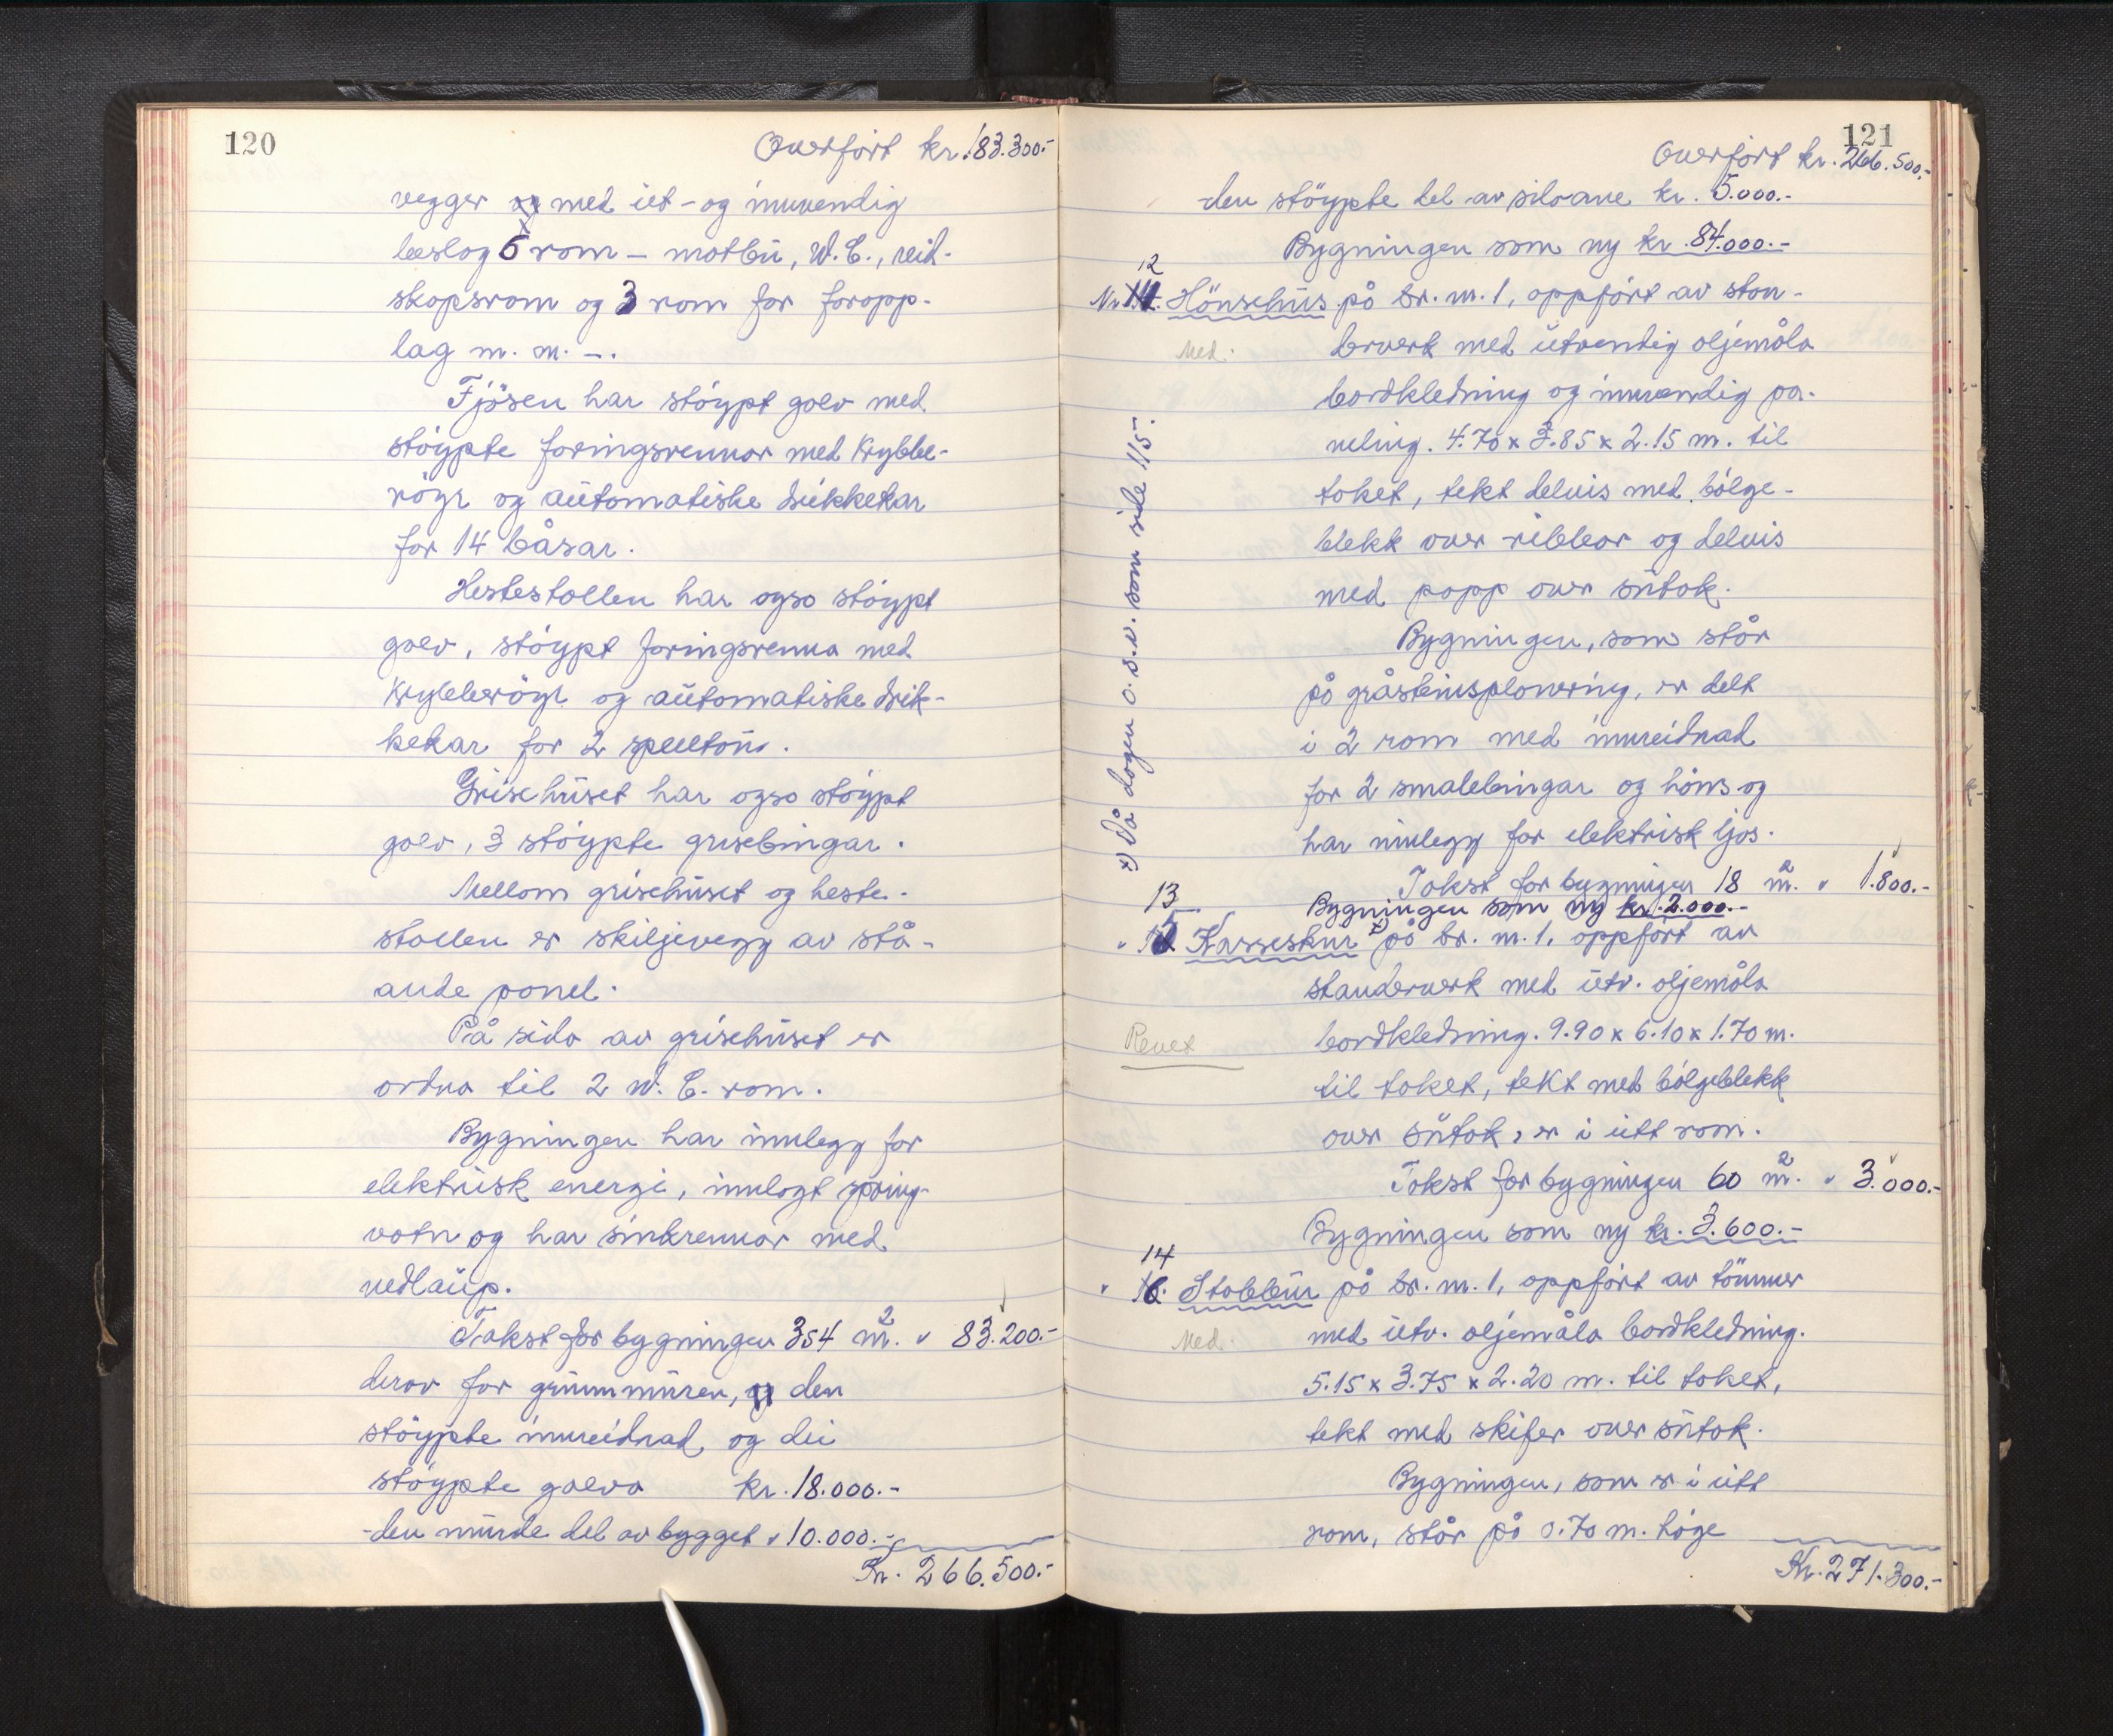 120
Overfört kr. 183.300.-
vegger og med ut- og innvendig
beslag 6 rom – matbu, W.C., reid-
skapsrom og 3 rom for foropp-
lag m. m. –.
Fjösen har stöypt golv med
stöypte foringsrennor med krybbe-
röyr og automatiske drikkekar
for 14 båsar.
Hestestallen har ogso stöypt
golv, stöypt foringsrenna med
krybberöyr og automatiske drik-
kekar for 2 spelltau.
Grisehuset har ogso stöypt
golv, 3 stöypte grisebingar.
Mellom grisehuset og heste-
stallen er skiljevegg av stå-
ande panel.
På sida av grisehuset er
ordna til 2 W.C. rom.
Bygningen har innlegg for
elektrisk energi, innlagt spring-
vatn og har sinkrennor med
nedlaup.
Takst for bygningen 354 m². " 83.200.-
derav for grunnmuren, og den
stöypte innreidnad og dei
stöypte golva kr. 18.000.-
-den murde del av bygget " 10.000.-
Kr. 266.500.-
121
Overfört kr. 266.500.-
-den stöypte del av siloane kr. 5.000.-
Bygningen som ny kr. 84.000.-
12
Nr. 14. Hönsehus på br. nr. 1, oppfört av stan-
Med.
derverk med utvendig oljemåla
bordkledning og innvendig pa-
neling. 4.70 x 3.85 x 2.15 m. til
taket, tekt delvis med bölge-
blekk over ribber og delvis
med papp over sutak.
Bygningen, som står
på gråsteinsplanering, er delt
i 2 rom med innreidnad
for 2 smalebingar og höns og
har innlegg for elektrisk ljos.
Takst for bygningen 18 m². " 1.800.-
Bygningen som ny kr. 2.000.-
x) Då dagen o.s.v. som side 115.
13
" 15 Kasseskur x) på br. nr. 1, oppfört av
standerverk med utv. oljemåla
Revet
bordkledning. 9.90 x 6.10 x 1.70 m.
til taket, tekt med bölgeblekk
over sutak, er i eitt rom.
Takst for bygningen 60 m². " 3.000.-
Bygningen som ny kr. 3.600.-
14
" 16. Stabbur på br. nr. 1, oppfört av tömmer
Med.
med utv. oljemåla bordkledning.
5.15 x 3.75 x 2.20 m. til taket,
tekt med skifer over sutak.
Bygningen, som er i eitt
rom, står på 0.70 m. höge
Kr. 271.300.-